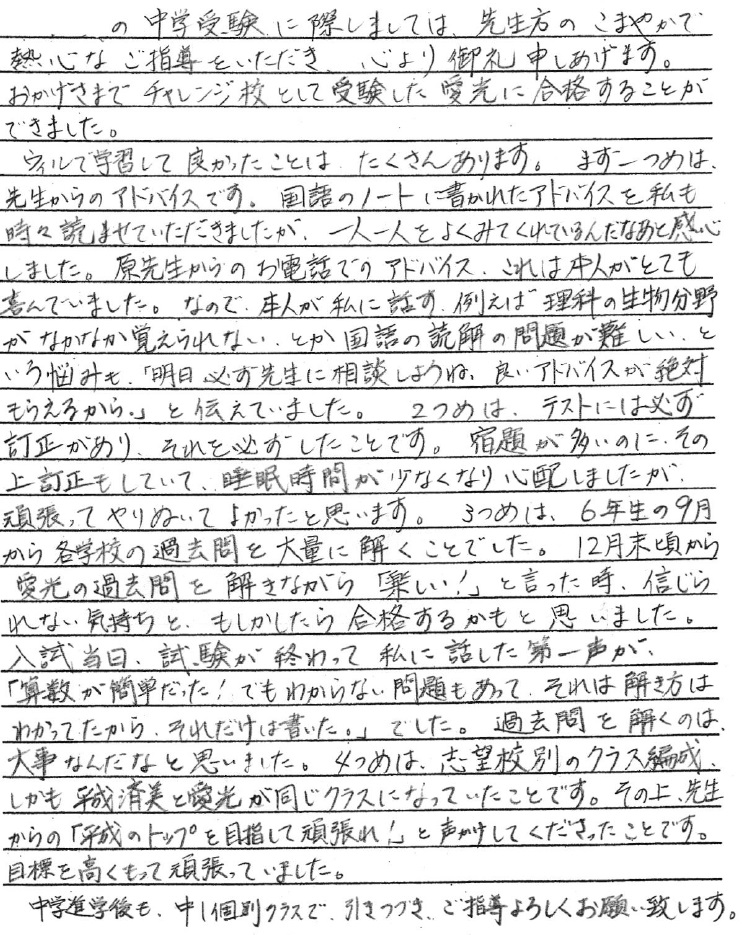 の中学受験に際しましては、先生方のこまやかで
熱心なご指導をいただき、心より御礼申しあげます。
おかげさまでチャレンジ校として受験した愛光に合格することが
できました。
ウィルで学習して良かったことは、たくさんあります。まず一つめは、
先生からのアドバイスです。国語のノートに書かれたアドバイスを私も
時々読ませていただきましたが、一人一人をよくみてくれているんだなあと感心
しました。原先生からのお電話でのアドバイス、これは本人がとても
喜んでいました。なので、本人が私に話す、例えば理科の生物分野
がなかなか覚えられない、とか国語の読解の問題が難しい、と
いう悩みも、「明日必ず先生に相談しようね、良いアドバイスが絶対
もらえるから。」と伝えていました。2つめは、テストには必ず
訂正があり、それを必ずしたことです。宿題が多いのに、その
上訂正もしていて、睡眠時間が少なくなり心配しましたが、
頑張ってやりぬいてよかったと思います。3つめは、6年生の9月
から各学校の過去問を大量に解くことでした。12月末頃から
愛光の過去問を解きながら「楽しい!」と言った時、信じら
れない気持ちと、もしかしたら合格するかもと思いました。
入試当日、試験が終わって私に話した第一声が、
「算数が簡単だった!でもわからない問題もあって、それは解き方は
わかってたから、それだけは書いた。」でした。過去問を解くのは、
大事なんだなと思いました。4つめは、志望校別のクラス編成、
しかも平成済美と愛光が同じクラスになっていたことです。その上、先生
からの「平成のトップを目指して頑張れ!」と声かけしてくださったことです。
目標を高くもって頑張っていました。
中学進学後も、中1個別クラスで、引きつづき、ご指導よろしくお願い致します。